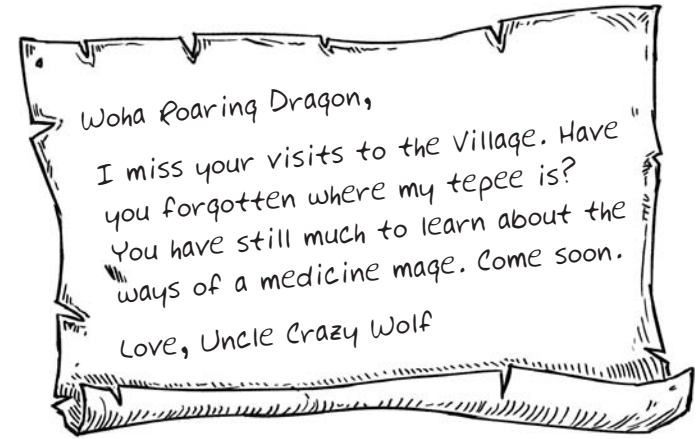 Woha Roaring Dragon,
I miss your visits to the Village. Have
you forgotten where my tepee is?
You have still much to learn about the
ways of a medicine mage. Come soon.
Love, Uncle Crazy Wolf